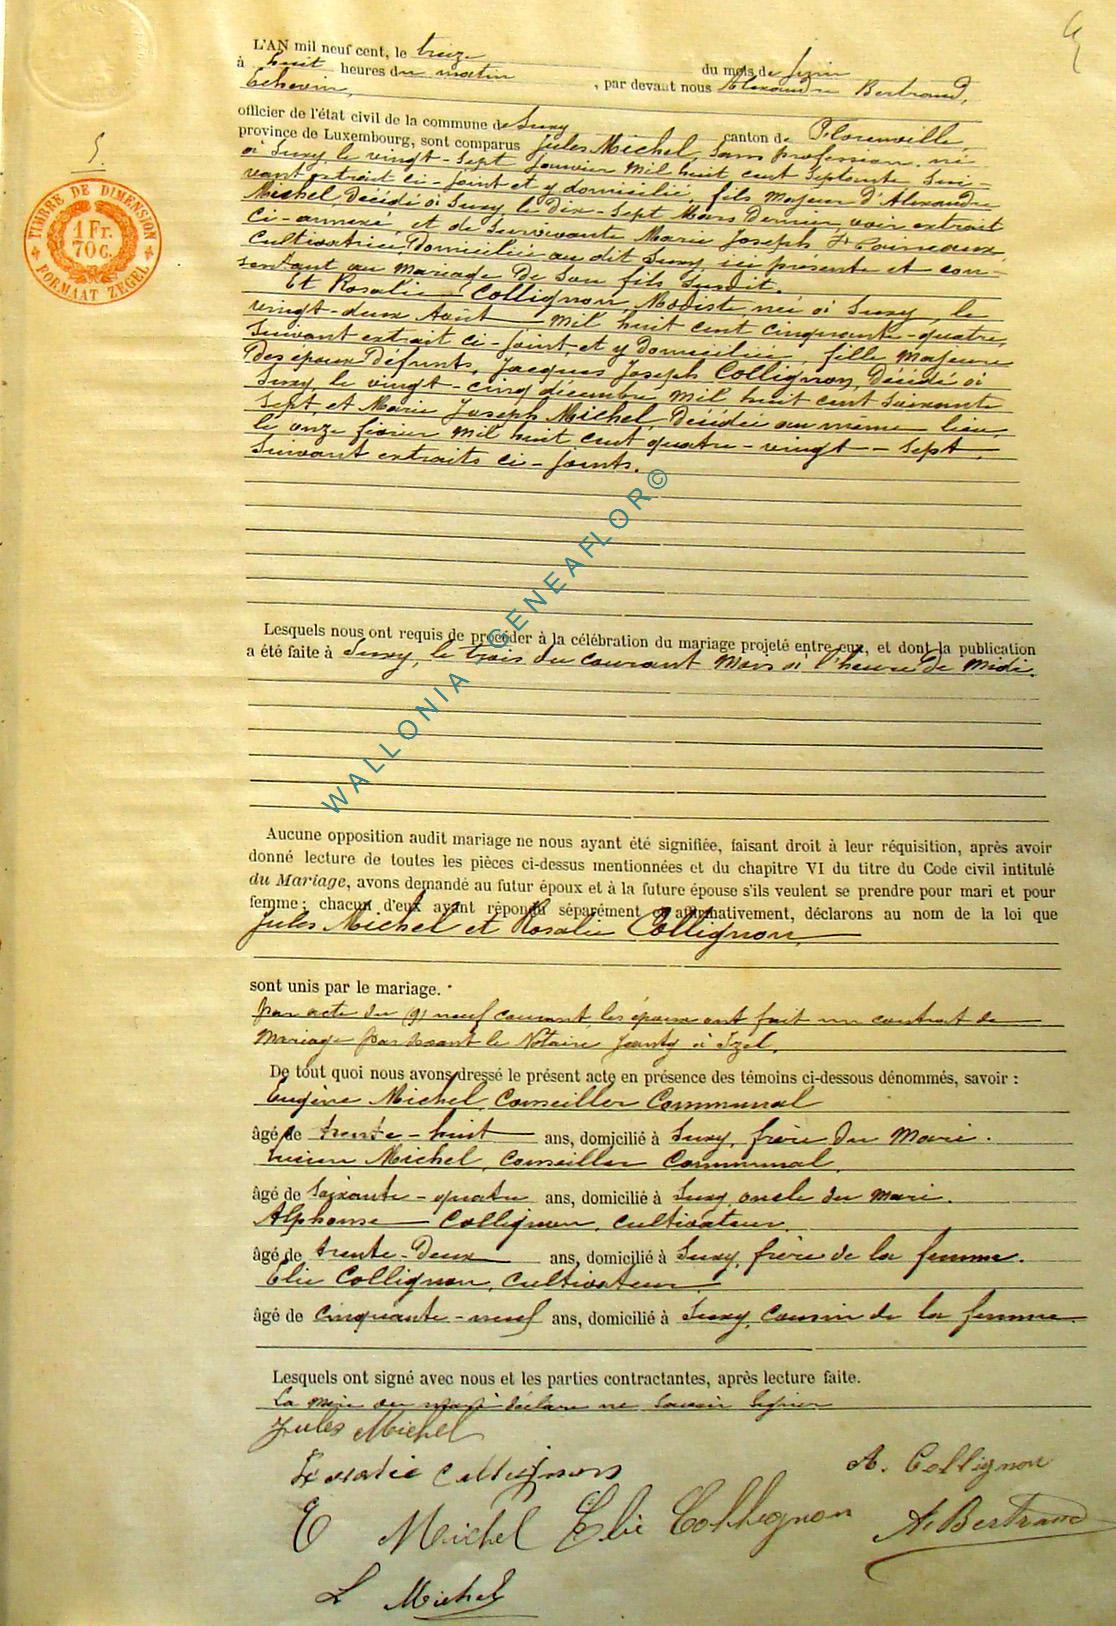 5.
TIMBRE DE DIMENSION
1 Fr.
70 C.
FORMAAT ZEGEL
L'AN mil neuf cent, le treize du mois de Juin
à huit heures du matin, par devant nous Alexandre Bertrand,
Echevin,
officier de l'état civil de la commune de Suxy canton de Florenville,
province de Luxembourg, sont comparus Jules Michel, Sans profession, né
à Suxy, le vingt-sept Janvier mil huit cent septante Sui-
vant extrait ci-joint et y domicilié, fils majeur d'Alexandre
Michel, décédé à Suxy, le Dix-Sept Mars Dernier, voir extrait
ci-annexé, et de Survivante Marie Joseph
Cultivatrice, Domiciliée au dit Suxy, ici présente et con-
sentant au mariage de Son fils Susdit.
Et Rosalie Collignon, Modiste, née à Suxy, le
vingt-deux Août mil huit cent cinquante-quatre,
Suivant extrait ci-joint, et y Domiciliée, fille majeure
Des époux Défunts, Jacques Joseph Collignon, Décédé à
Suxy le vingt-cinq décembre mil huit cent Soixante
Sept, et Marie Joseph Michel, Décédée au même lieu,
le onze février mil huit cent quatre-vingt-sept,
Suivant extraits ci-joints.
Lesquels nous ont requis de procéder à la célébration du mariage projeté entre eux, et dont la publication
a été faite à Suxy, le trois du courant Mois à l'heure de Midi.
WALLONIA GENEAFLOR©
Aucune opposition audit mariage ne nous ayant été signifiée, faisant droit à leur réquisition, après avoir
donné lecture de toutes les pièces ci-dessus mentionnées et du chapitre VI du titre du Code civil intitulé
du Mariage, avons demandé au futur époux et à la future épouse s'ils veulent se prendre pour mari et pour
femme ; chacun d'eux ayant répondu séparément et affirmativement, déclarons au nom de la loi que
Jules Michel et Rosalie Collignon
sont unis par le mariage.
par acte du (9) neuf courant, les époux ont fait un contrat de
Mariage par devant le Notaire Jeanty à Izel.
De tout quoi nous avons dressé le présent acte en présence des témoins ci-dessous dénommés, savoir :
Eugène Michel, Conseiller Communal
âgé de trente-huit ans, domicilié à Suxy, frère du Mari.
Lucien Michel, Conseiller Communal,
âgé de Soixante-quatre ans, domicilié à Suxy, oncle du mari.
Alphonse Collignon, Cultivateur,
âgé de trente-Deux ans, domicilié à Suxy, frère de la femme.
Elie Collignon, Cultivateur
âgé de cinquante-neuf ans, domicilié à Suxy, Cousin de la femme
Lesquels ont signé avec nous et les parties contractantes, après lecture faite.
La mère du mari déclare ne Savoir Signer
Jules Michel
Rosalie Collignon A. Collignon
E Michel Elie Collignon A. Bertrand
L Michel